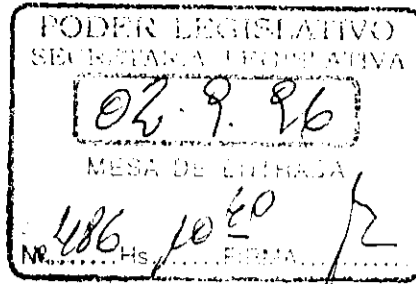 PODER LEGISLATIVO
SECRETARIA LEGISLATIVA
02.9.96
MESA DE ENTRADA
Nº 486 Hs. 10 40 FIRMA